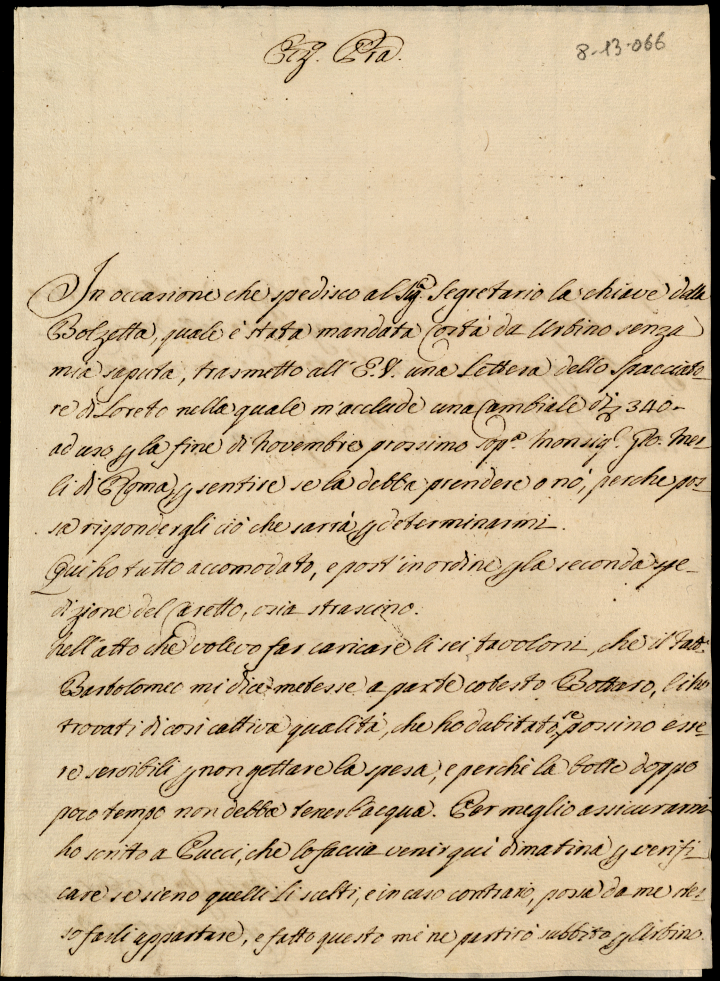 8-13-066
In occasione che spedisco al Sig.r Segretario la chiave della
Bolzetta, quale è stata mandata costà da Urbino senza
mia saputa, trasmetto all' E.V. una Lettera dello Spacciato-
re di Loreto nella quale m'acclude una Cambiale di 340-
ad uso p la fine di Novembre prossimo sop.a Monsig.r Mer-
li di Roma p sentire se la debba prendere o nò, perche pos-
sa rispondergli ciò che sarrà p determinarmi.
Qui ho tutto accomodato, e post' in ordine p la seconda spe-
dizione del Caretto, osia strascino.
Nell'atto che volevo far caricare li sei tavoloni, che il Fatt.e
Bartolomeo mi dice metesse a parte cotesto Bottaro, li ho
trovati di cosi cattiva qualità, che ho dubitato, se possino esse-
re servibili p non gettare la spesa, e perchè la botte doppo
poco tempo non debba tener l'acqua. Per meglio assicurarmi
ho scritto a Pucci, che lo faccia venir qui dimatina p verifi-
care se sieno quelli li scelti, e in caso contrario, possa da me stes-
so farli appartare, e fatto questo mè ne partirò subbito p Urbino.